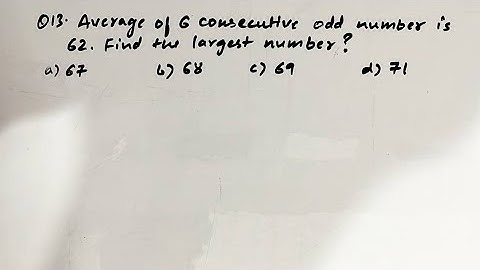 Q13. Average of 6 consecutive odd number is
62. Find the largest number?
a) 67 b) 68 c) 69 d) 71